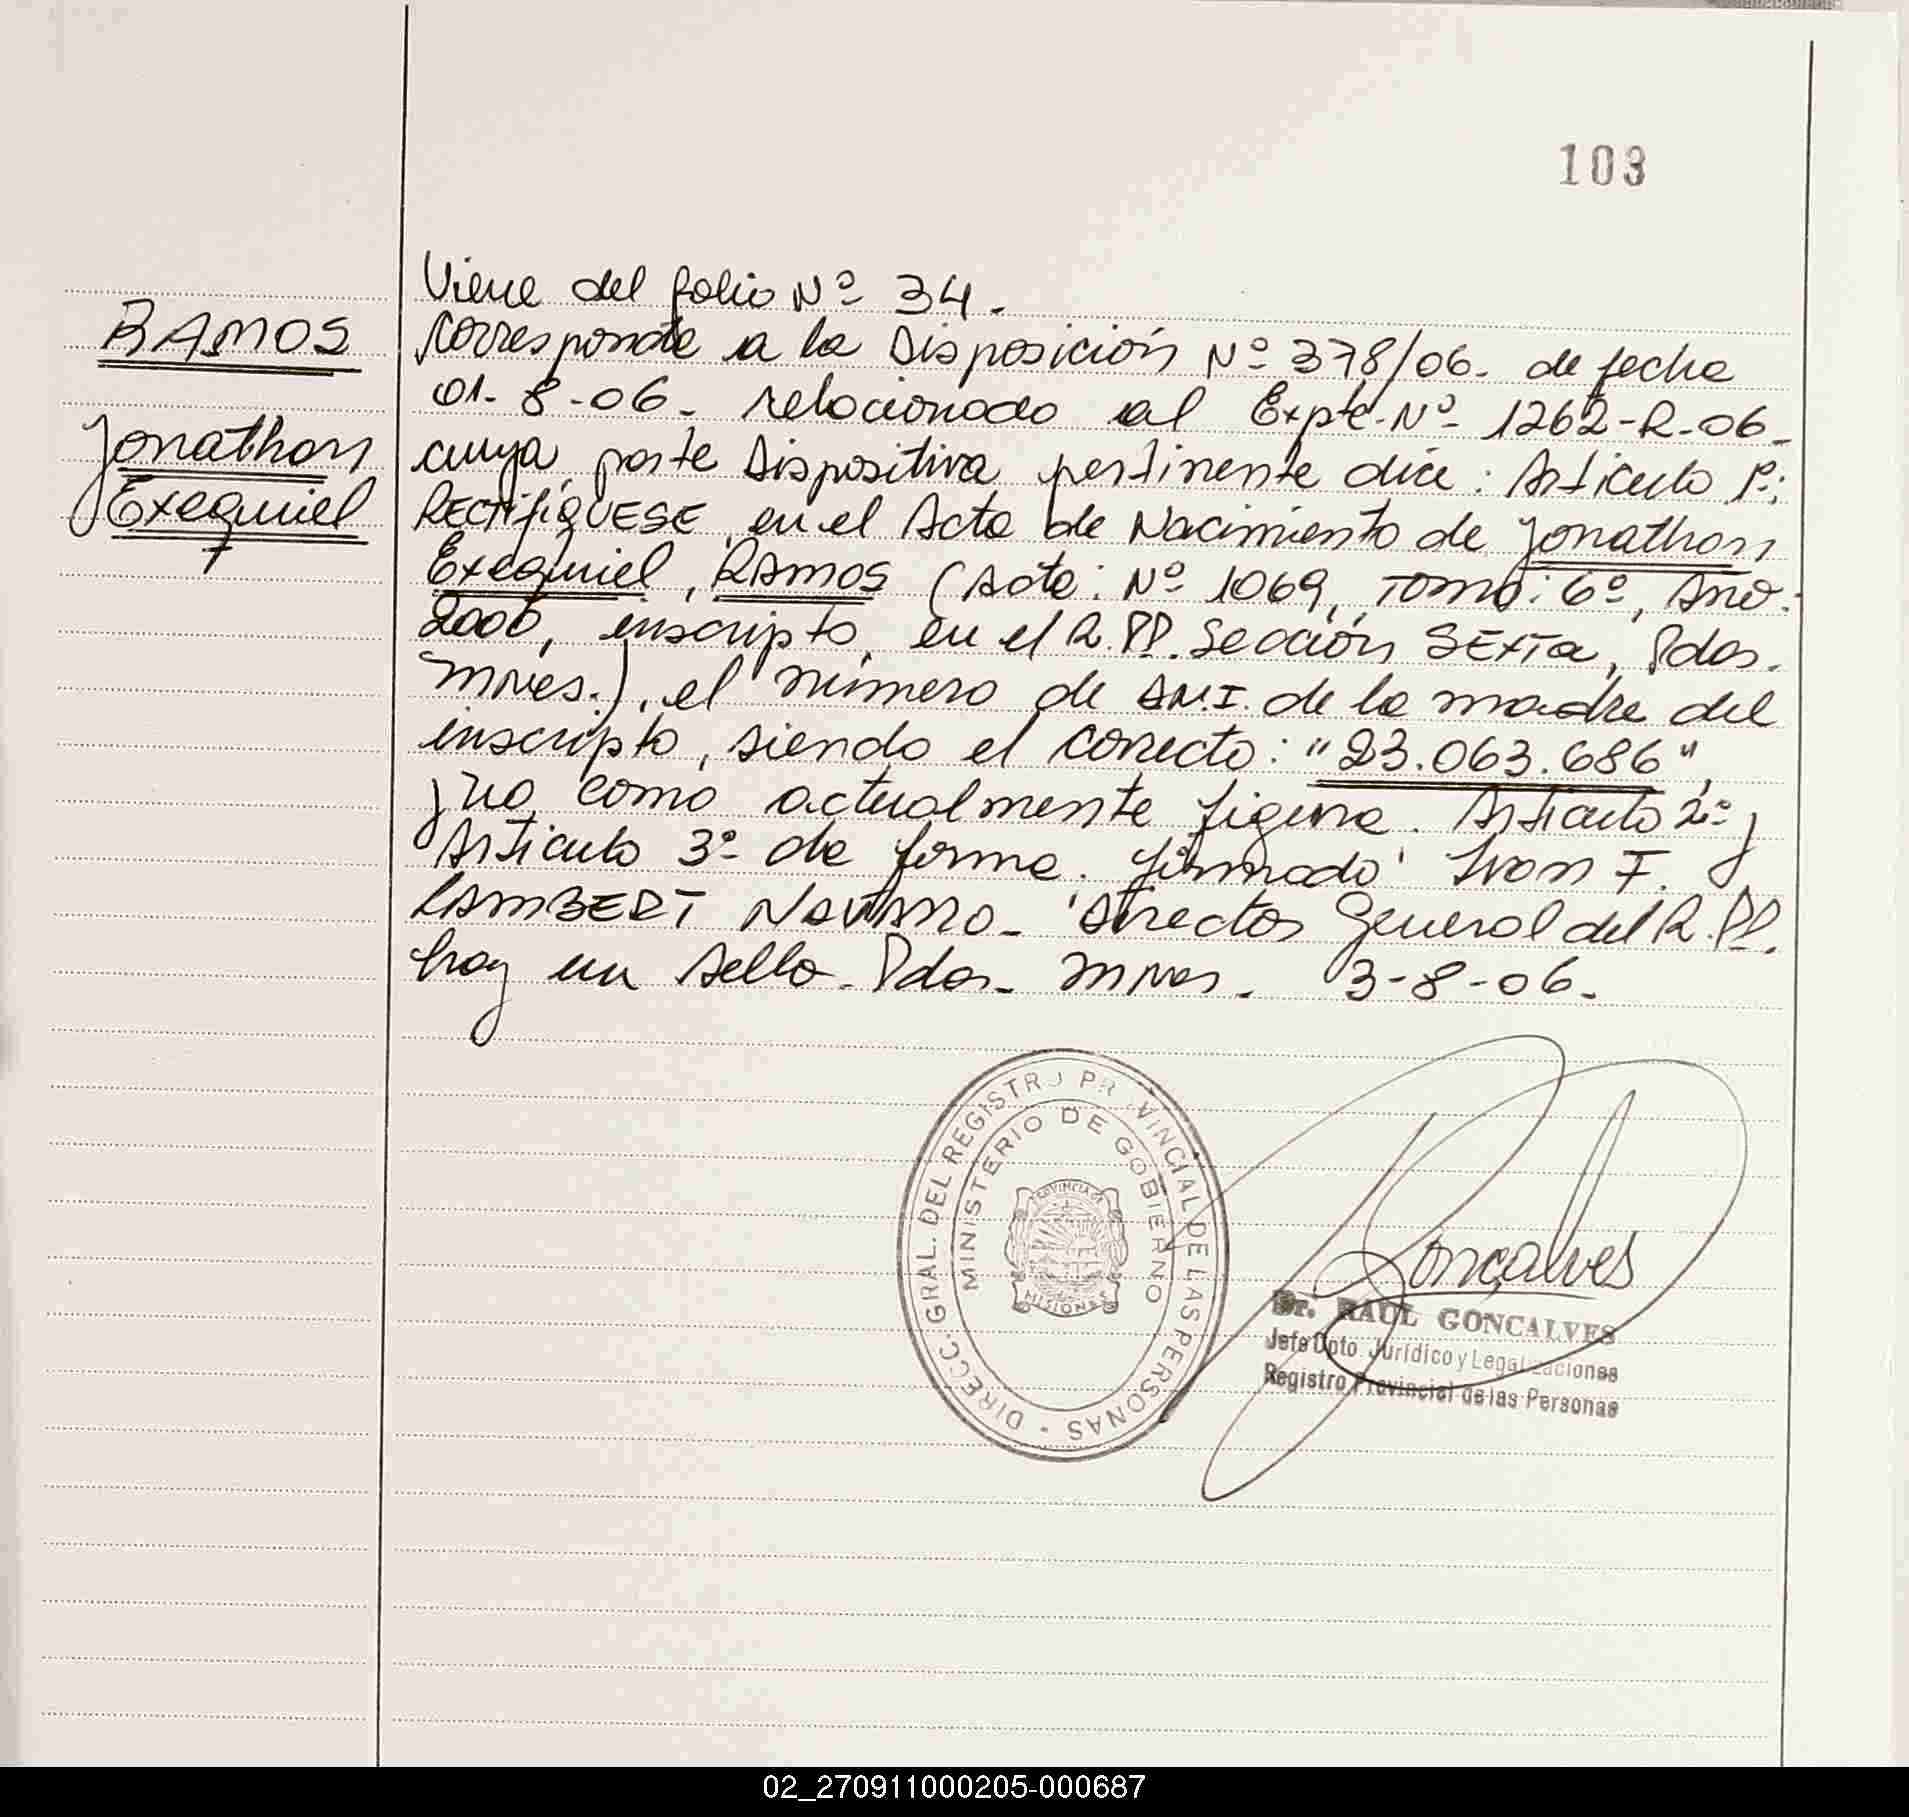 103
RAMOS
Jonathan
Exequiel
Viene del folio Nº 34.
Corresponde a la Disposición Nº 378/06. de fecha
01-8-06. relacionado al Expte. Nº 1262-R-06.
cuya parte Dispositiva pertinente dice: Artículo 1º:
RECTIFIQUESE, en el Acta de Nacimiento de Jonathan
Exequiel, RAMOS (Acta: Nº 1069, Tomo: 6º, Año:
2000, inscripto, en el R.PP. Sección SEXTA, Pdas.
Mnes.), el número de D.N.I. de la madre del
inscripto, siendo el correcto: "23.063.686",
y no como actualmente figura. Artículo 2º y
Artículo 3º de forma. firmado Ivan F.
LAMBERT NAVARRO- Director General del R.PP.
hay un sello. Pdas. Mnes. 3-8-06.
DIRECC. GRAL. DEL REGISTRO PROVINCIAL DE LAS PERSONAS -
MINISTERIO DE GOBIERNO
PROVINCIA DE
MISIONES
Gonçalves
Dr. RAUL GONCALVES
Jefe Dpto. Jurídico y Legalizaciones
Registro Provincial de las Personas
02_270911000205-000687